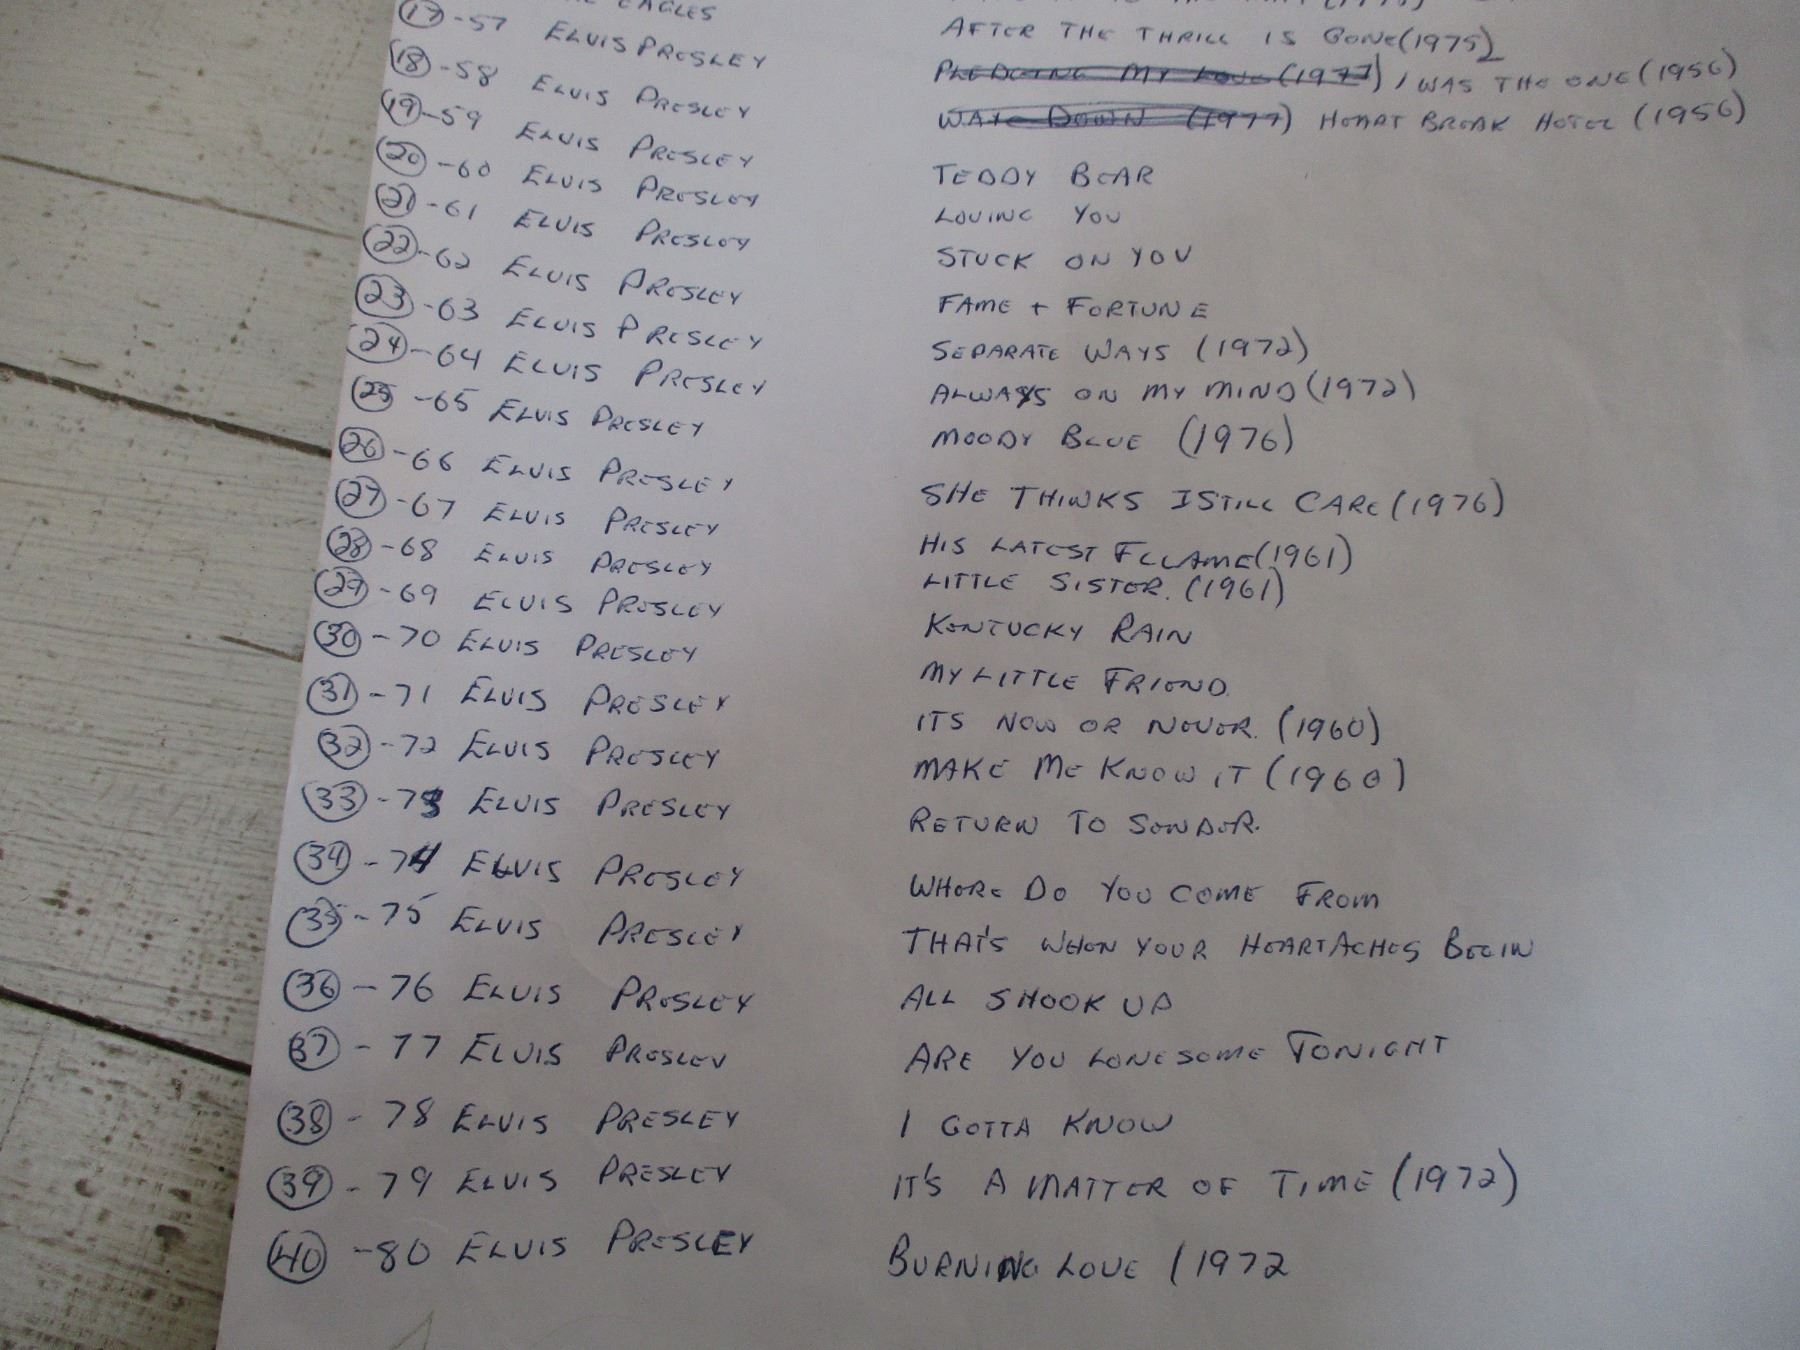 EAGLES AFTER THE THRILL IS GONE (1975)
17 -57 ELVIS PRESLEY PLEDGING MY LOVE (1977) I WAS THE ONE (1956)
18 -58 ELVIS PRESLEY WAY DOWN (1977) HEART BREAK HOTEL (1956)
19 -59 ELVIS PRESLEY TEDDY BEAR
20 -60 ELVIS PRESLEY LOVING YOU
21 -61 ELVIS PRESLEY STUCK ON YOU
22 -62 ELVIS PRESLEY FAME + FORTUNE
23 -63 ELVIS PRESLEY SEPARATE WAYS (1972)
24 -64 ELVIS PRESLEY ALWAYS ON MY MIND (1972)
25 -65 ELVIS PRESLEY MOODY BLUE (1976)
26 -66 ELVIS PRESLEY SHE THINKS I STILL CARE (1976)
27 -67 ELVIS PRESLEY HIS LATEST FLLAME (1961)
28 -68 ELVIS PRESLEY LITTLE SISTER. (1961)
29 -69 ELVIS PRESLEY KENTUCKY RAIN
30 -70 ELVIS PRESLEY MY LITTLE FRIEND
31 -71 ELVIS PRESLEY ITS NOW OR NEVER. (1960)
32 -72 ELVIS PRESLEY MAKE ME KNOW IT (1960)
33 -73 ELVIS PRESLEY RETURN TO SENDER.
34 -74 ELVIS PRESLEY WHERE DO YOU COME FROM
35 -75 ELVIS PRESLEY THAT'S WHEN YOUR HEARTACHES BEGIN
36 -76 ELVIS PRESLEY ALL SHOOK UP
37 -77 ELVIS PRESLEY ARE YOU LONESOME TONIGHT
38 -78 ELVIS PRESLEY I GOTTA KNOW
39 -79 ELVIS PRESLEY IT'S A MATTER OF TIME (1972)
40 -80 ELVIS PRESLEY BURNING LOVE (1972